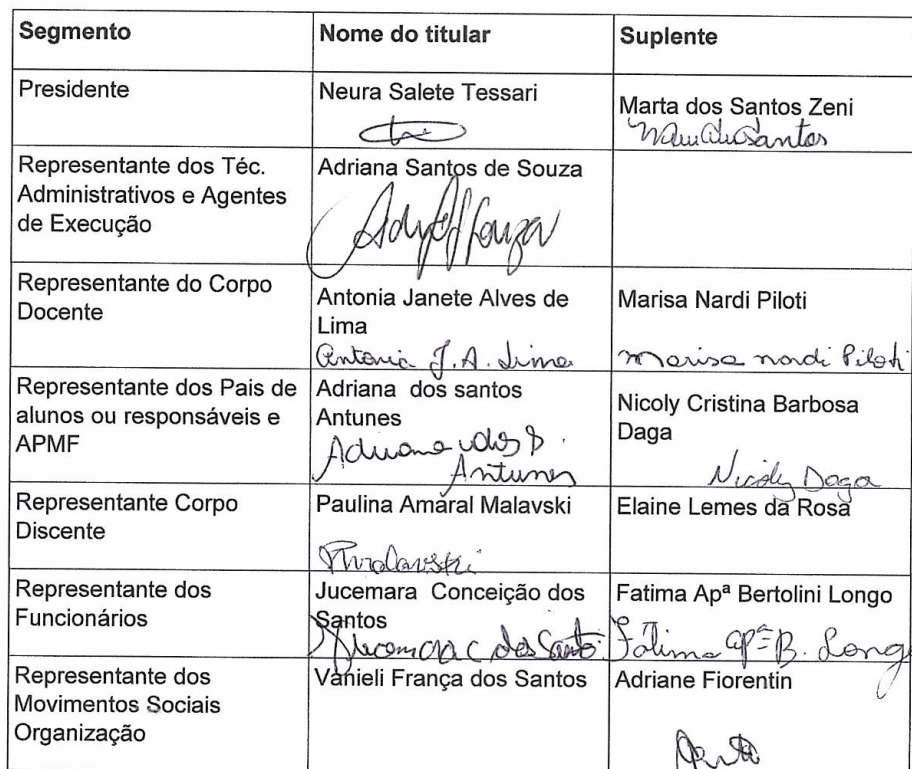 Segmento
Nome do titular
Suplente
Presidente
Neura Salete Tessari
Marta dos Santos Zeni
Representante dos Téc.
Administrativos e Agentes
de Execução
Adriana Santos de Souza
Representante do Corpo
Docente
Antonia Janete Alves de
Lima
Antonia J. A. Lima
Marisa Nardi Piloti
Marisa nardi Piloti
Representante dos Pais de
alunos ou responsáveis e
APMF
Adriana dos santos
Antunes
Adriana dos S.
Antunes
Nicoly Cristina Barbosa
Daga
Nicoly Daga
Representante Corpo
Discente
Paulina Amaral Malavski
Elaine Lemes da Rosa
Representante dos
Funcionários
Jucemara Conceição dos
Santos
Jucemara C dos Santos
Fatima Apª Bertolini Longo
Fátima Apª B. Longo
Representante dos
Movimentos Sociais
Organização
Vanieli França dos Santos
Adriane Fiorentin